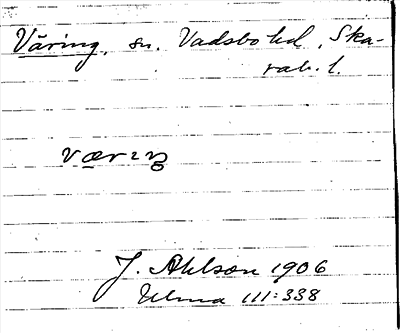 Väring, sn. Vadsbo hd, Ska-
rab. l.
værıŋ
J. Ahlson 1906
Ulma 111:338